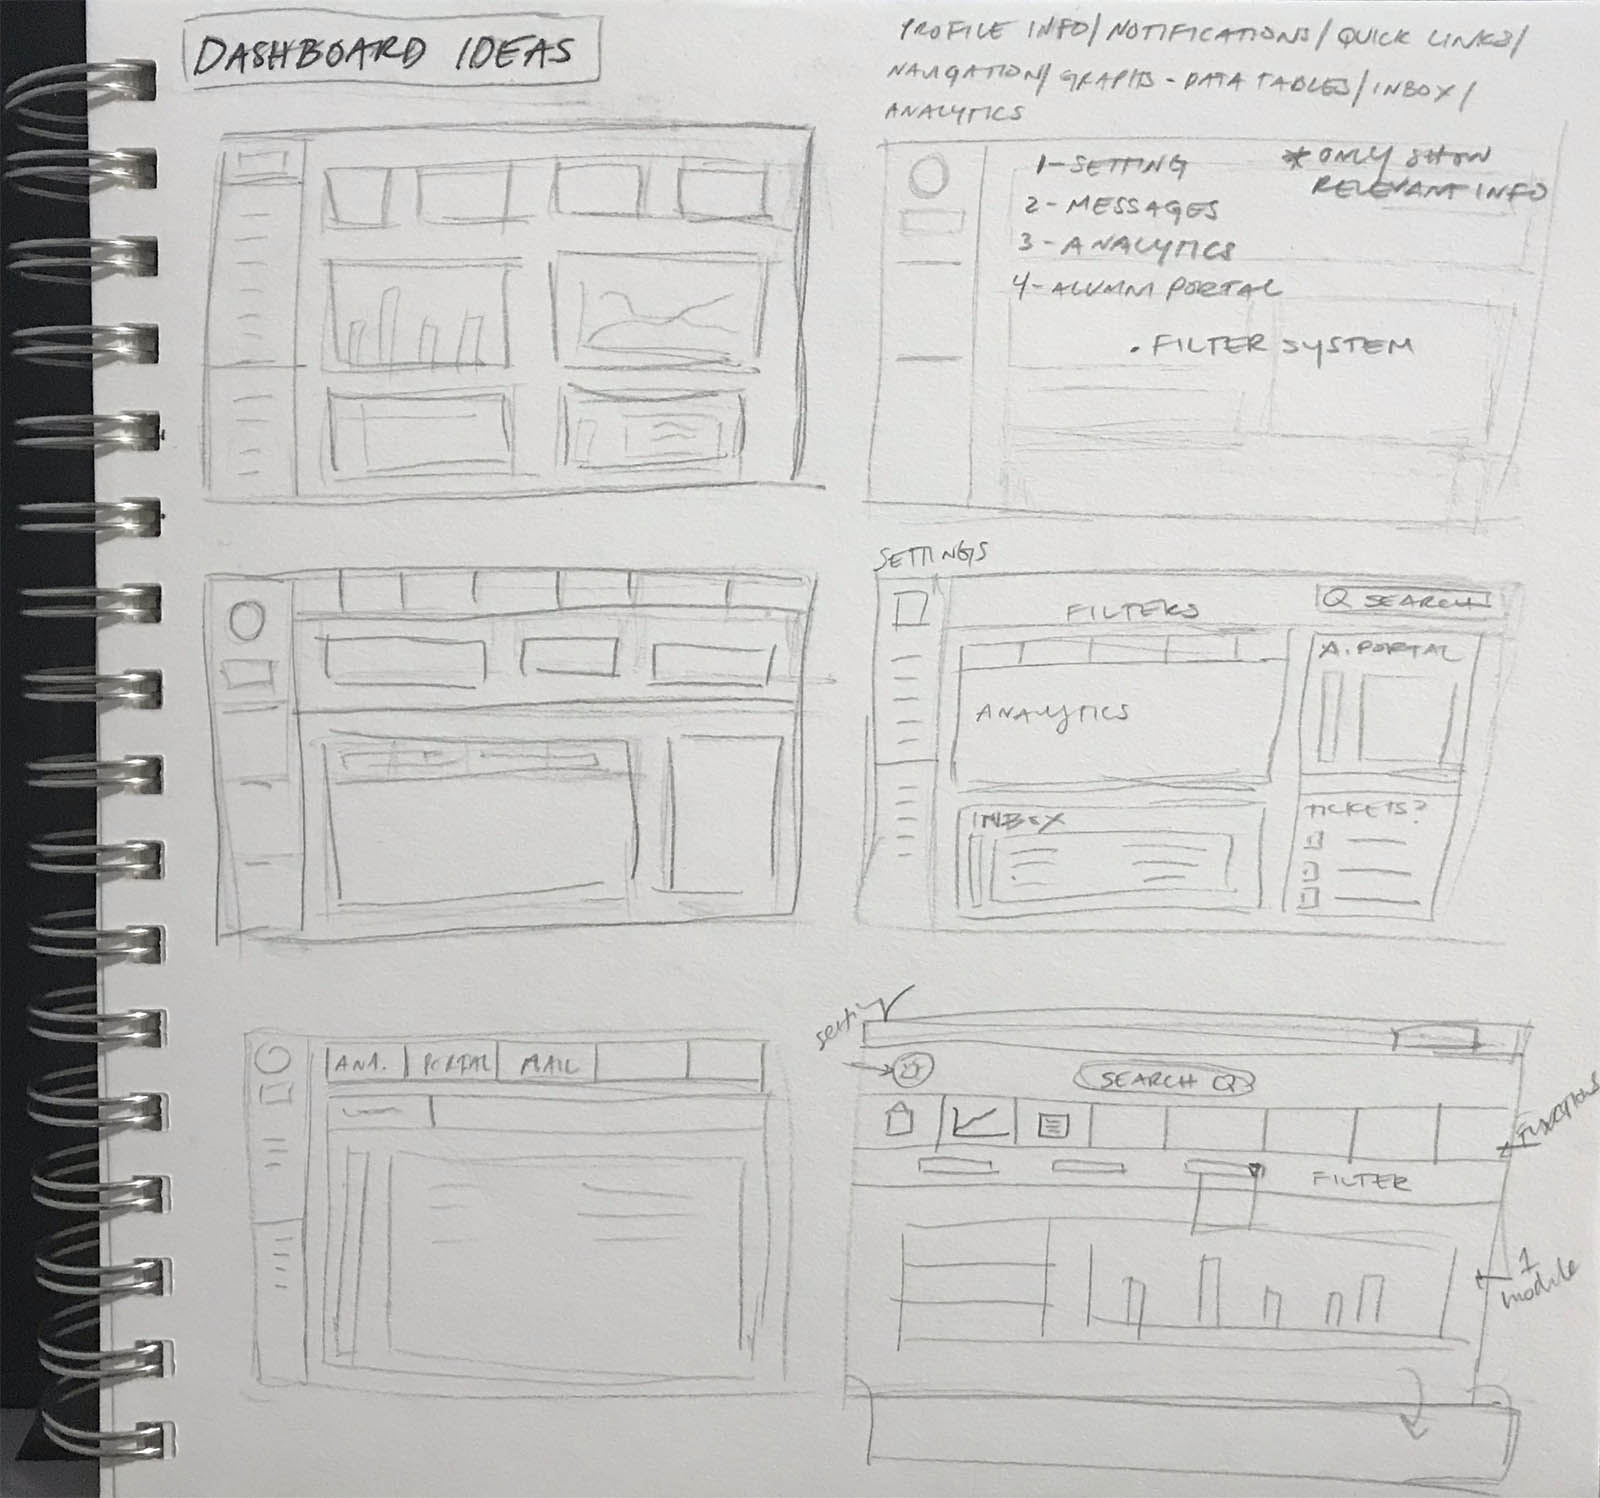 DASHBOARD IDEAS
PROFILE INFO/NOTIFICATIONS/QUICK LINKS/
NAVIGATION/GRAPHS-DATA TABLES/INBOX/
ANALYTICS
1-SETTING
2-MESSAGES
3-ANALYTICS
4-ALUMNI PORTAL
* ONLY SHOW
RELEVANT INFO
. FILTER SYSTEM
SETTINGS
FILTERS
SEARCH
A. PORTAL
ANALYTICS
INBOX
TICKETS?
ANA. PORTAL MAIL
setting
SEARCH
FUNCTIONS
FILTER
1
module